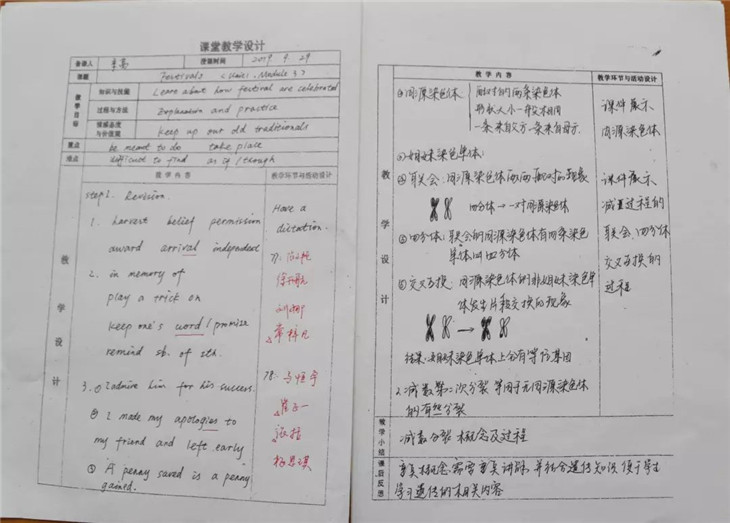 课堂教学设计
备课人
授课时间 2019 9. 29
课题 Festivals (Unit1, Module 3)
教学目标
知识与技能 Learn about how festival are celebrated
过程与方法 Explanation and practice
情感态度与价值观 Keep up our old traditionals
重点 be meant to do take place
难点 difficult to find as if / though
教学内容 教学环节与活动设计
教学设计
step1. Revision.
1. harvest belief permission
award arrival independent
2. in memory of
play a trick on
keep one's word / promise
remind sb. of sth.
3. ① admire him for his success.
② I made my apologies to
my friend and left early
③ A penny saved is a penny
gained.
Have a
dictation.
77:
78:
教学内容 教学环节与活动设计
教学设计
①同源染色体
配对的两条染色体
形状大小一般都相同
一条来自父方一条来自母方
②姐妹染色单体:
③联会:同源染色体两两配对的现象
四分体→一对同源染色体
④四分体:联会的同源染色体有两条染色
单体叫四分体
⑤交叉互换:同源染色体的非姐妹染色单
体发生片段交换的现象
结果:姐妹染色单体上会有等位基因
2.减数第二次分裂 等同于无同源染色体
的有丝分裂
课件展示
同源染色体
课件展示
减Ⅰ过程的
联会、四分体
交叉互换的
过程
教学小结 减数分裂 概念及过程
课后反思
学习遗传的相关内容